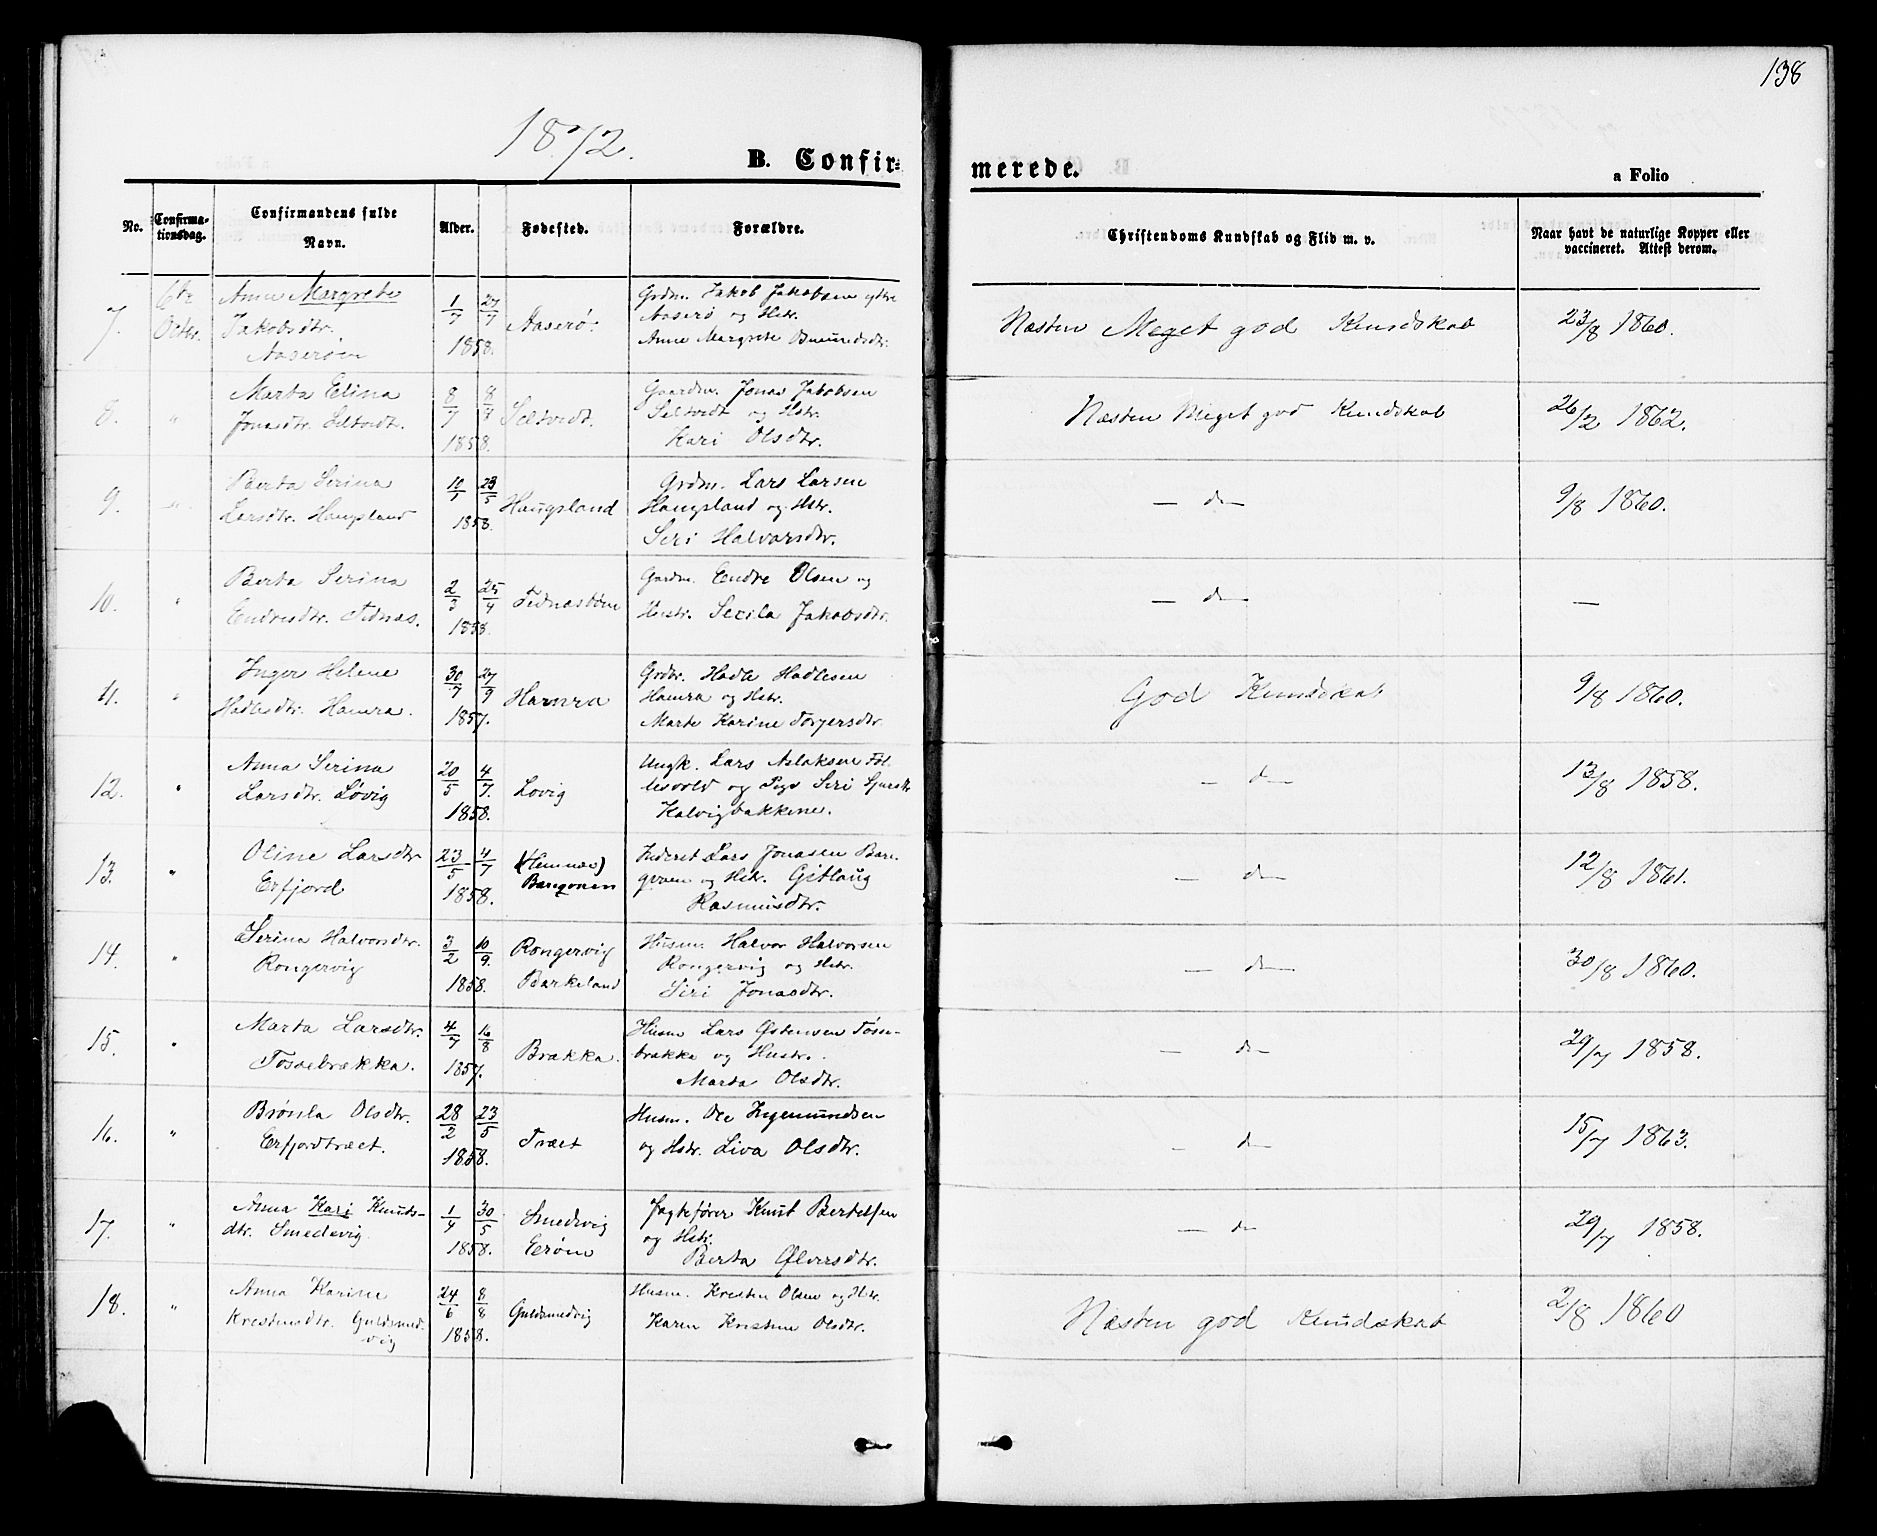 138
1872.
B. Confir=
merede.
a Folio
No.
Confirma-
tionsdag.
Confirmandens fulde
Navn.
Alder.
Fødested.
Forældre.
Christendoms Kundskab og Flid m. v.
Naar havt de naturlige Kopper eller
vaccineret. Attest derom.
7.
6te
Octbr.
Anne Margrete
Jakobsdtr.
Aaserøen
1/7 27/7
1858.
Aaserø:
Grdm. Jakob Jakobsen ytre
Aaserø og Hstr.
Anne Margrete
Næsten Meget god Kundskab
23/8 1860.
8.
"
Marta Elina
Jonasdtr. Seltvedt.
8/7 8/7
1858.
Seltvedt.
Gaardm. Jonas Jakobsen
Seltvedt og Hstr.
Kari Olsdtr.
Næsten Meget god Kundskab
26/2 1862.
9.
"
Berta Serina
Larsdtr. Haugsland
10/1 23/5
1858.
Haugsland
Grdm. Lars Larsen
Haugsland og Hstr.
Siri Halvorsdtr.
— do —
9/8 1860.
10.
"
Berta Serina
Endresdtr. Tednes.
2/3 25/4
1858.
Gardm. Endre Olsen og
Hustr. Secila Jakobsdtr.
— do —
—
11.
"
Inger Helene
Hadlesdtr. Hamra.
30/7 27/9
1857.
Hamra
Grdbr. Hadle Hadlesen
Hamra og Hstr.
Marte Karine Torgersdtr.
God Kundskab
9/8 1860.
12.
"
Anna Serina
Larsdtr. Løvig
20/5 4/7.
1858.
Lovig
Ungk. Lars Aslaksen Føl-
lesvold og Pige Siri
Kalvigbakkene.
— do —
13/8 1858.
13.
"
Oline Larsdtr
Erfjord
23/5 4/7
1858.
(Hemnæs)
Barqonen
Inderst Lars Jonasen
og Hstr. Gitlaug
Rasmusdtr.
— do —
12/8 1861.
14.
"
Serina Halvorsdtr.
Rongervig
3/2 10/9.
1858.
Rongervig
Barkeland
Husm. Halvor Halvorsen
Rongervig og Hstr.
Siri Jonasdtr.
— do —
30/8 1860.
15.
"
Marta Larsdtr.
Tossebrækka.
4/7 16/8
1857.
Brækka.
Husm Lars Østensen Tosse-
brækka og Hustr.
Marta Olsdtr.
— do —
29/7 1858.
16.
"
Brønla Olsdtr.
Erfjordtræet.
28/2 23/5
1858.
Træet
Husm. Ole Ingemundsen
og Hstr. Liva Olsdtr.
do
15/7 1863.
17.
"
Anna Kari Knuds-
dtr. Smedevig
1/4 30/5
1858.
Smedvig
Eerøen
Jagtefører Knut Bertelsen
og Hstr.
Berta Ølversdtr.
— do
29/7 1858.
18.
"
Anna Karine
Kristensdtr. Guldsmed-
vig
24/6 8/8
1858.
Guldsmedvig
Husm. Kristen Olsen og Hstr.
Karen Kristine Olsdtr.
Næsten god Kundskab
2/8 1860